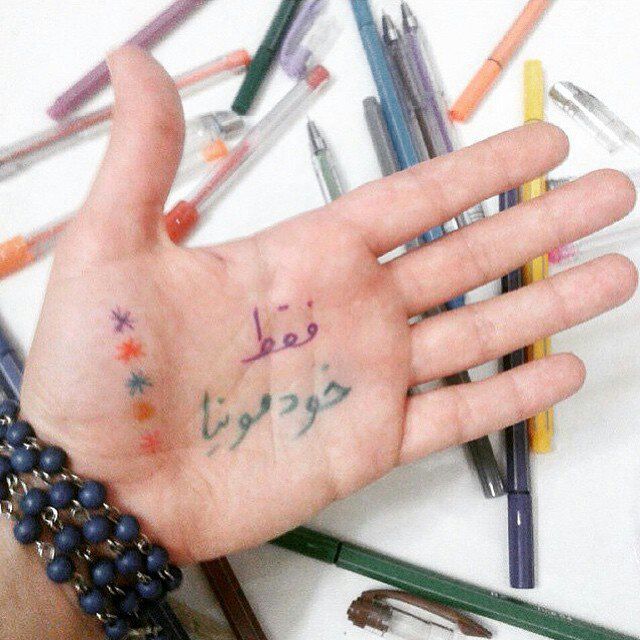 فقط
خودمونیا